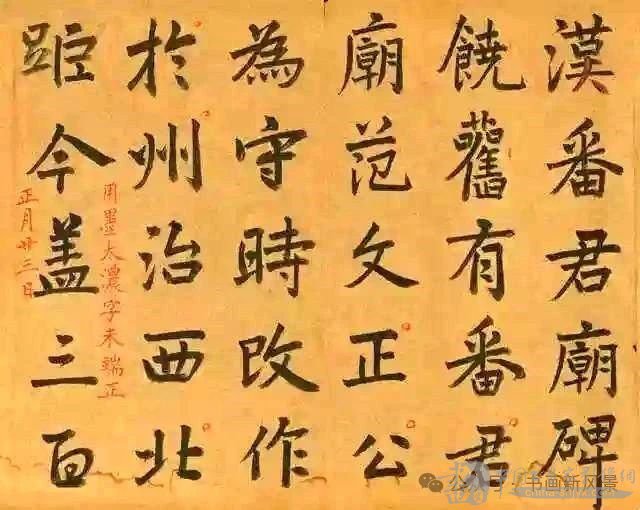 漢番君廟碑
饒舊有番君
廟范文正公
為守時改作
於州治西北
用墨太濃字未端正
距今蓋三百
正月廿三日
公众号·书画新风景